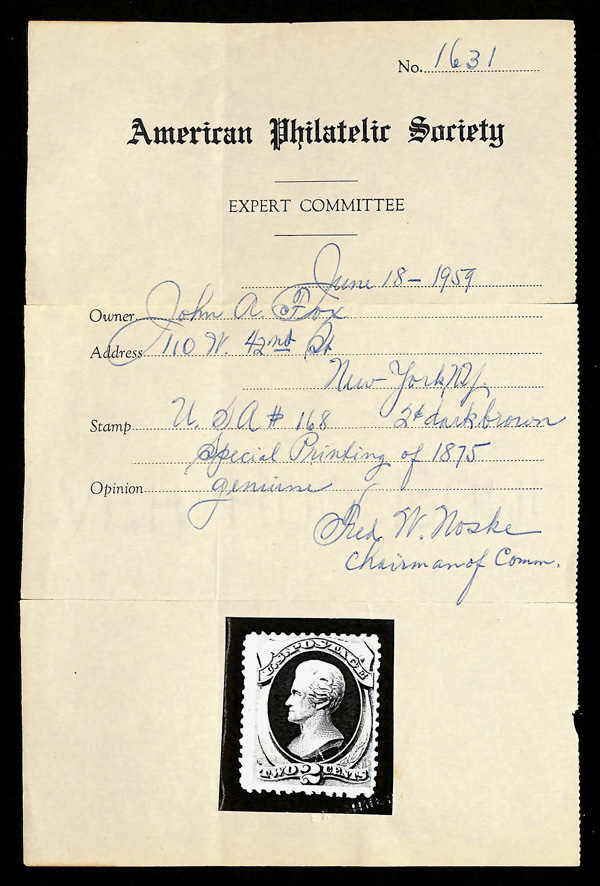 No. 1631
American Philatelic Society
EXPERT COMMITTEE
June 18 - 1959
Owner John A. Fox
Address 110 W. 42nd St
New York NY.
Stamp U. S A # 168 2¢ dark brown
Special Printing of 1875
Opinion genuine
Fred W. Noske
Chairman of Comm.
U.S. POSTAGE
TWO 2 CENTS